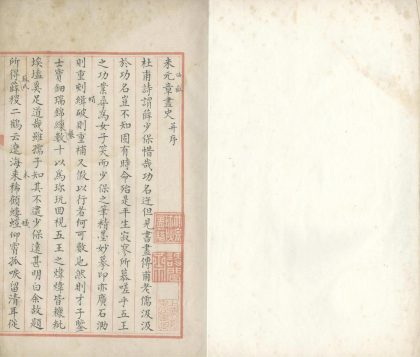 米元章畫史 并序
杜甫詩謂薛少保惜哉功名迕但見書畫傳甫老儒汲汲
於功名豈不知固有時命殆是平生寂寥所慕嗟乎五王
之功業尋為女子笑而少保之筆精墨妙摹印亦廣石泐
則重刻絹破則重補又假以行者何可數也然則才子鑒
士寶鈿瑞錦繅數十以為珍玩回視五王之煒煒皆糠秕
埃壒奚足道哉雖孺子知其不逮少保遠甚明白余故題
所得薛稷二鶴云遼海來稀顧螻蟻仰霄孤唳留清耳從